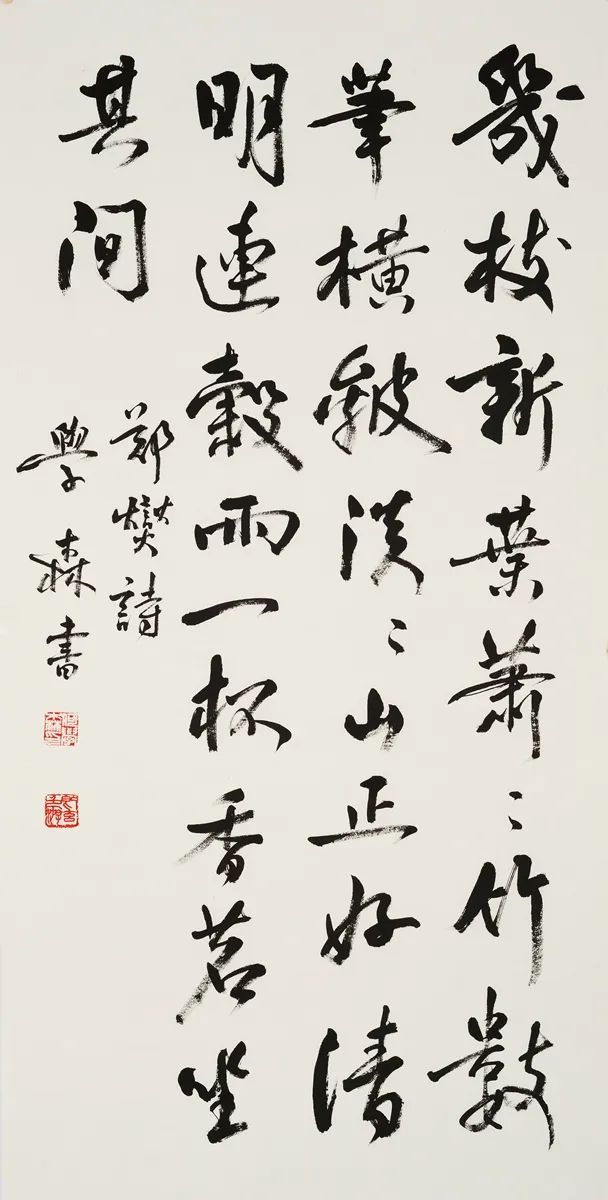 幾枝新葉蕭〻竹數
筆橫皴淡〻山正好清
明連穀雨一杯香茗坐
其间
郑燮詩
學森書